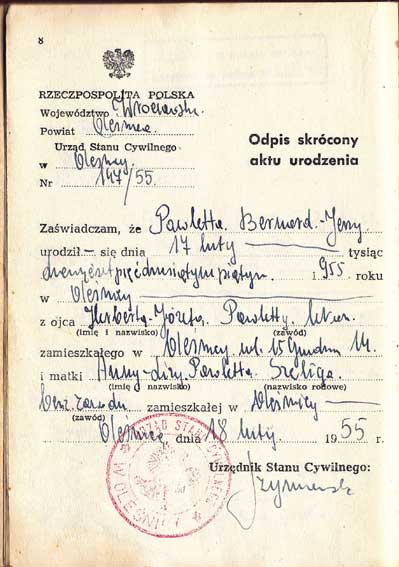 8
RZECZPOSPOLITA POLSKA
Województwo Wrocławskie
Powiat Oleśnica
Urząd Stanu Cywilnego
w Oleśnicy
Nr 147/55.
Odpis skrócony
aktu urodzenia
Zaświadczam, że Pawletta Bernard-Jerzy
urodził — się dnia 17 luty — tysiąc
dziewięćset pięćdziesiątym piątym 1955 roku
w Oleśnicy
z ojca Herberta-Józefa Pawletty
(imię i nazwisko) (zawód)
zamieszkałego w Oleśnicy ul. 15 Grudnia 14.
i matki Anny- Pawletta Szeliga
(imię i nazwisko) (nazwisko rodowe)
bez zawodu zamieszkałej w Oleśnicy —
(zawód)
Oleśnica, dnia 18 luty 1955 r.
Urzędnik Stanu Cywilnego:
URZĄD STANU CYWILNEGO
W OLEŚNICY